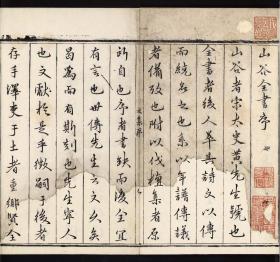 山谷全書序
山谷者宋太史黃先生號也
全書者後人萃其詩文以傳
而統名之也系以年譜傳議
者備攷也附以伐檀集者原
所自也序者書缺而後全宜
有言也世傳先生之文久矣
曷為而有斯刻也先生寧人
也文獻於是乎徵嗣後者
存手澤吏于土者重鄉賢全